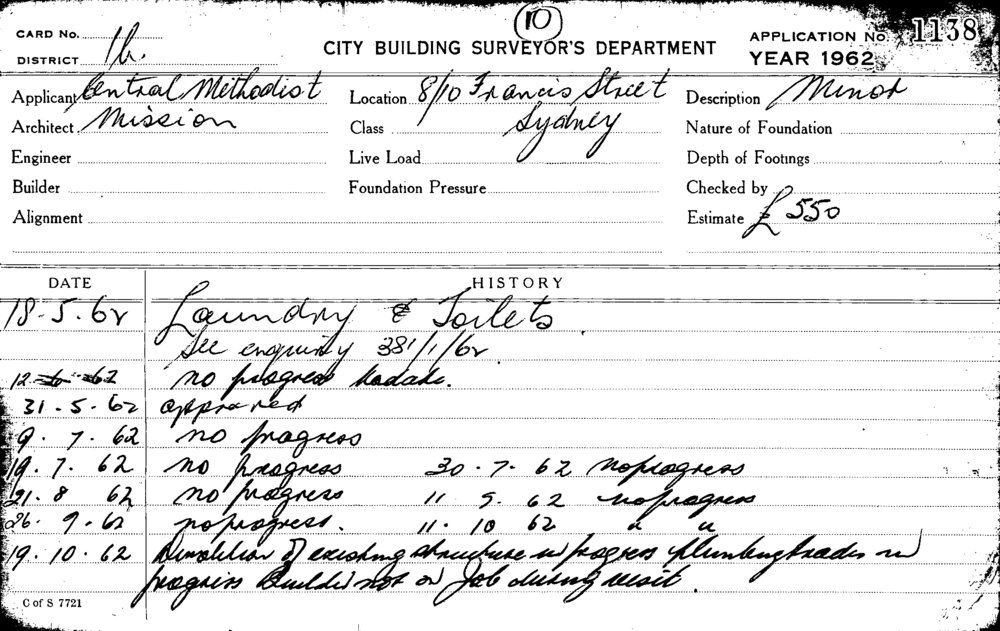 10
CARD No.
DISTRICT 1b.
CITY BUILDING SURVEYOR'S DEPARTMENT
APPLICATION No. 1138
YEAR 1962
Applicant Central Methodist
Location 8/10 Francis Street
Description Minor
Architect Mission
Class Sydney
Nature of Foundation
Engineer
Live Load
Depth of Footings
Builder
Foundation Pressure
Checked by
Alignment
Estimate £ 550
DATE HISTORY
18-5-62 Laundry & Toilets
See enquiry 381/1/62
12-6-62 no progress
31.5.62 approved
9.7.62 no progress
19.7.62 no progress 30.7.62 no progress
21.8 62 no progress 11 9. 62 no progress
26.9.62 no progress. 11.10 62 " "
19.10.62 Demolition of existing structure in progress plumbing trades in
progress Builder not on Job during visit.
C of S 7721